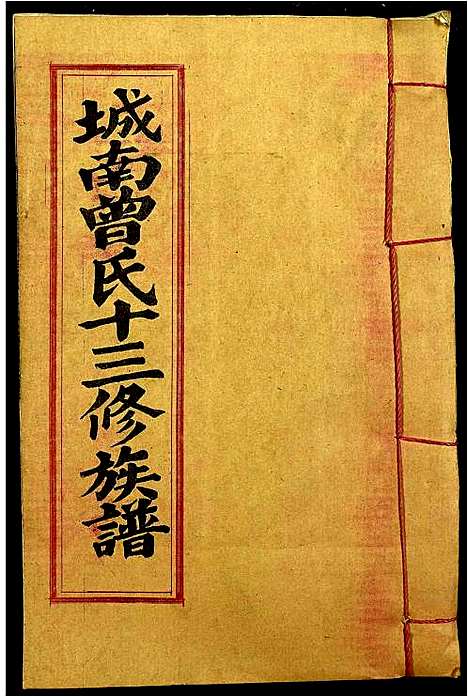 城南曾氏十三修族譜